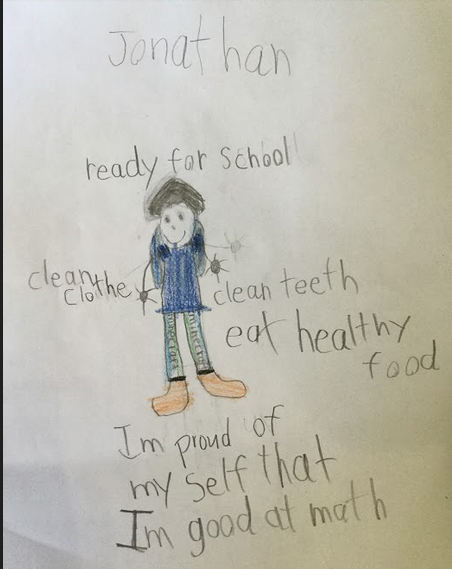 Jonathan
ready for school
clean
clothe
clean teeth
eat healthy
food
Im proud of
my self that
Im good at math